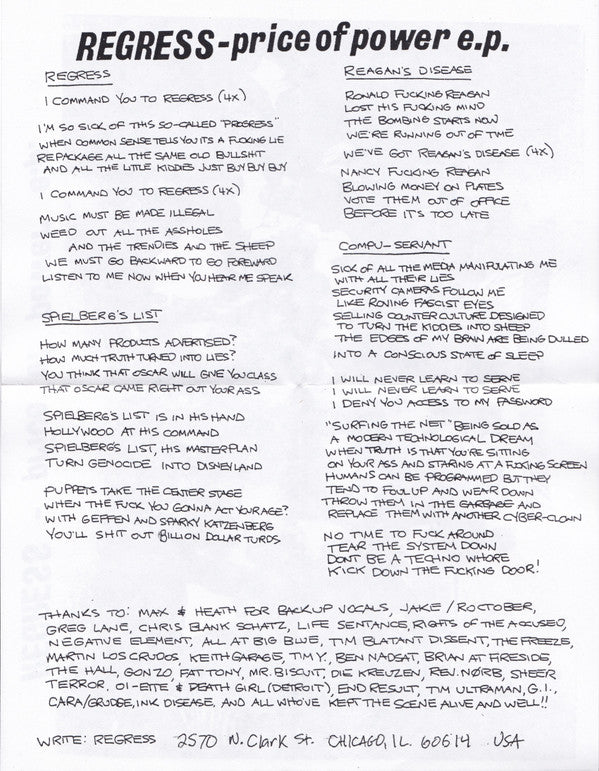 REGRESS-price of power e.p.
REGRESS
I COMMAND YOU TO REGRESS (4X)
I'M SO SICK OF THIS SO-CALLED "PROGRESS"
WHEN COMMON SENSE TELLS YOU ITS A FUCKING LIE
REPACKAGE ALL THE SAME OLD BULLSHIT
AND ALL THE LITTLE KIDDIES JUST BUY BUY BUY
I COMMAND YOU TO REGRESS (4X)
MUSIC MUST BE MADE ILLEGAL
WEED OUT ALL THE ASSHOLES
AND THE TRENDIES AND THE SHEEP
WE MUST GO BACKWARD TO GO FORWARD
LISTEN TO ME NOW WHEN YOU HEAR ME SPEAK
SPIELBERG'S LIST
HOW MANY PRODUCTS ADVERTISED?
HOW MUCH TRUTH TURNED INTO LIES?
YOU THINK THAT OSCAR WILL GIVE YOU CLASS
THAT OSCAR CAME RIGHT OUT YOUR ASS
SPIELBERG'S LIST IS IN HIS HAND
HOLLYWOOD AT HIS COMMAND
SPIELBERG'S LIST, HIS MASTERPLAN
TURN GENOCIDE INTO DISNEYLAND
PUPPETS TAKE THE CENTER STAGE
WHEN THE FUCK YOU GONNA ACT YOUR AGE?
WITH GEFFEN AND SPARKY KATZENBERG
YOU'LL SHIT OUT BILLION DOLLAR TURDS
REAGAN'S DISEASE
RONALD FUCKING REAGAN
LOST HIS FUCKING MIND
THE BOMBING STARTS NOW
WE'RE RUNNING OUT OF TIME
WE'VE GOT REAGAN'S DISEASE (4X)
NANCY FUCKING REAGAN
BLOWING MONEY ON PLATES
VOTE THEM OUT OF OFFICE
BEFORE IT'S TOO LATE
COMPU-SERVANT
SICK OF ALL THE MEDIA MANIPULATING ME
WITH ALL THEIR LIES
SECURITY CAMERAS FOLLOW ME
LIKE ROVING FASCIST EYES
SELLING COUNTER CULTURE DESIGNED
TO TURN THE KIDDIES INTO SHEEP
THE EDGES OF MY BRAIN ARE BEING DULLED
INTO A CONSCIOUS STATE OF SLEEP
I WILL NEVER LEARN TO SERVE
I WILL NEVER LEARN TO SERVE
I DENY YOU ACCESS TO MY PASSWORD
"SURFING THE NET" BEING SOLD AS
A MODERN TECHNOLOGICAL DREAM
WHEN TRUTH IS THAT YOU'RE SITTING
ON YOUR ASS AND STARING AT A FUCKING SCREEN
HUMANS CAN BE PROGRAMMED BUT THEY
TEND TO FOUL UP AND WEAR DOWN
THROW THEM IN THE GARBAGE AND
REPLACE THEM WITH ANOTHER CYBER-CLOWN
NO TIME TO FUCK AROUND
TEAR THE SYSTEM DOWN
DONT BE A TECHNO WHORE
KICK DOWN THE FUCKING DOOR!
THANKS TO: MAX & HEATH FOR BACKUP VOCALS, JAKE/ROCTOBER,
GREG LANE, CHRIS BLANK SCHATZ, LIFE SENTANCE, RIGHTS OF THE ACCUSED,
NEGATIVE ELEMENT, ALL AT BIG BLUE, TIM BLATANT DISSENT, THE FREEZE,
MARTIN LOS CRUDOS, KEITH GARAGE, TIM Y., BEN NADSAT, BRIAN AT FIRESIDE,
THE HALL, GONZO, FAT TONY, MR. BISCUIT, DIE KREUZEN, REV. NØRB, SHEER
TERROR, OI-ETTE & DEATH GIRL (DETROIT), END RESULT, TIM ULTRAMAN, G.I.,
CARA/GRUDGE, INK DISEASE, AND ALL WHO'VE KEPT THE SCENE ALIVE AND WELL!!
WRITE: REGRESS 2570 N. Clark St. CHICAGO, IL. 60614 USA